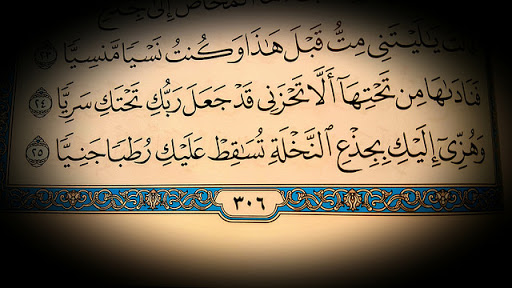 ٱلْمَخَاضُ إِلَىٰ جِذْعِ
يَٰلَيْتَنِى مِتُّ قَبْلَ هَٰذَا وَكُنتُ نَسْيًا مَّنسِيًّا ٢٣
فَنَادَىٰهَا مِن تَحْتِهَآ أَلَّا تَحْزَنِى قَدْ جَعَلَ رَبُّكِ تَحْتَكِ سَرِيًّا ٢٤
وَهُزِّىٓ إِلَيْكِ بِجِذْعِ ٱلنَّخْلَةِ تُسَٰقِطْ عَلَيْكِ رُطَبًا جَنِيًّا ٢٥
٣٠٦